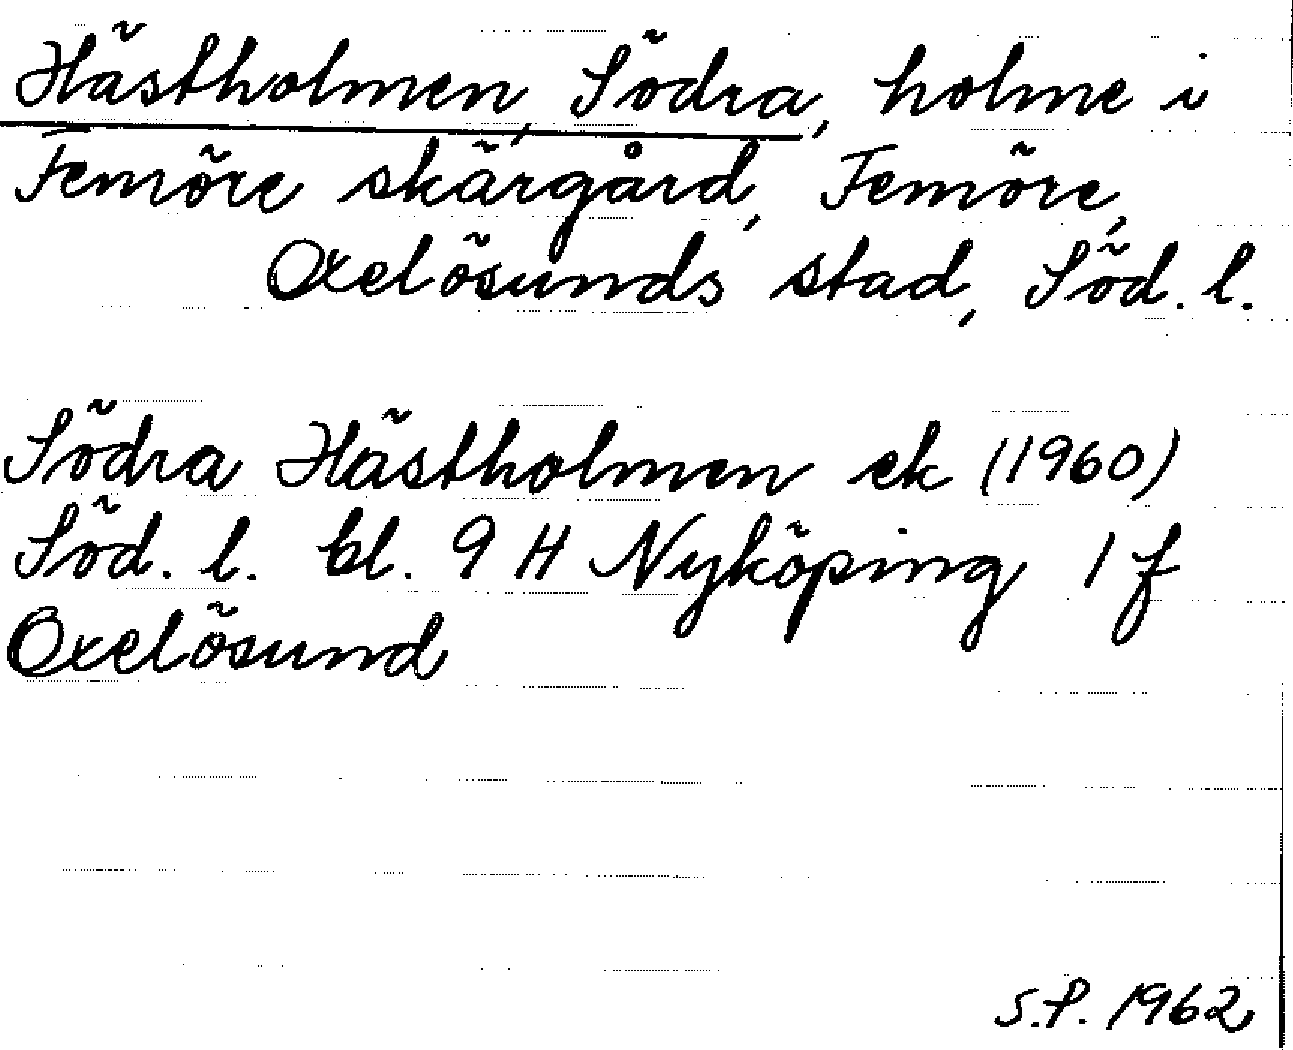 Hästholmen, Södra, holme i
Femöre skärgård, Femöre,
Oxelösunds stad, Söd. l.
Södra Hästholmen ek (1960)
Söd. l. bl. 9 H Nyköping 1 f
Oxelösund
S.P. 1962